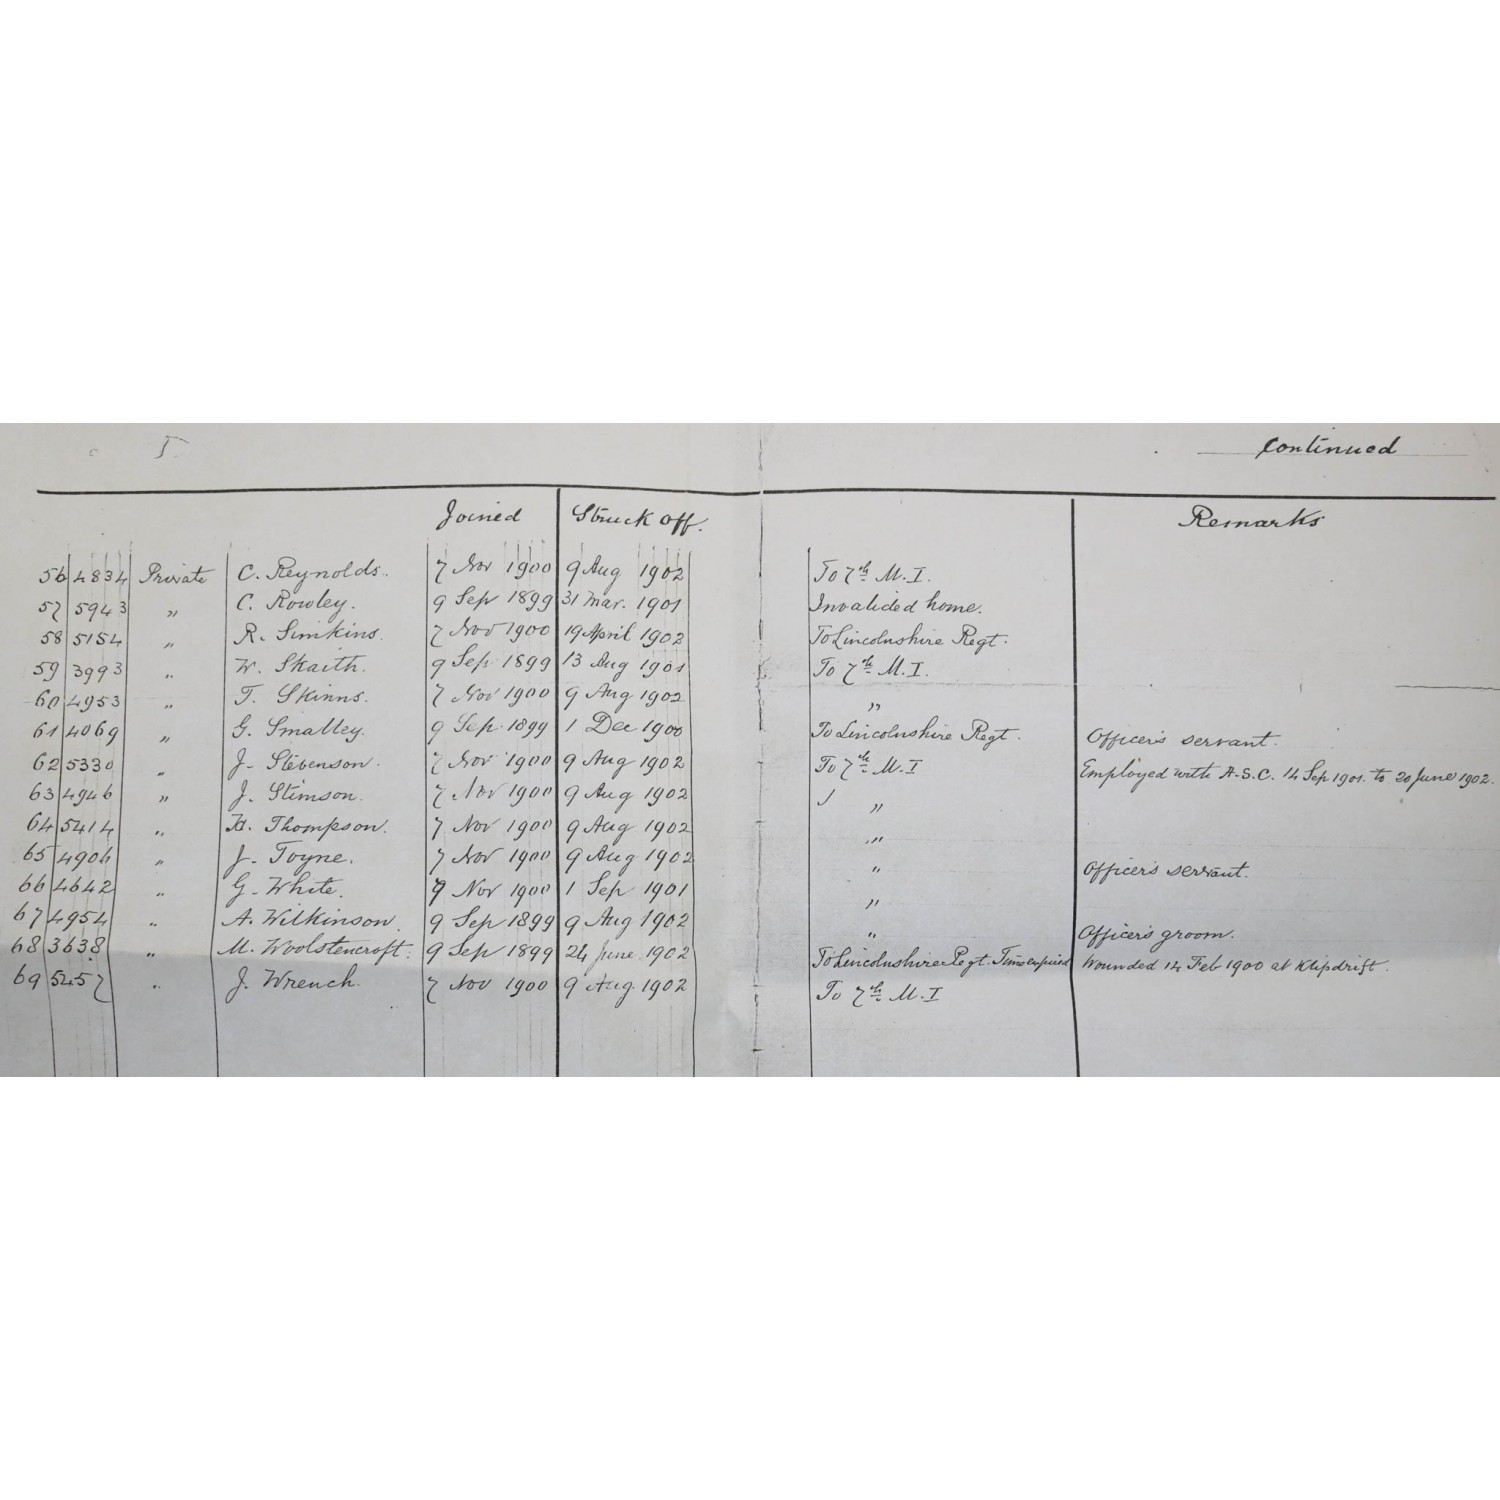 Continued
Joined Struck off. Remarks
56 4834 Private C. Reynolds. 7 Nov 1900 9 Aug 1902 To 7th M.I.
57 5943 " C. Rowley. 9 Sep 1899 31 Mar. 1901 Invalided home.
58 5154 " R. Simkins. 7 Nov 1900 19 April 1902 To Lincolnshire Regt.
59 3993 " W. Skaith. 9 Sep 1899 13 Aug 1901 To 7th M.I.
60 4953 " T. Skinns. 7 Nov 1900 9 Aug 1902 "
61 4069 " G. Smalley. 9 Sep 1899 1 Dec 1900 To Lincolnshire Regt. Officer's servant.
62 5330 " J. Stevenson. 7 Nov 1900 9 Aug 1902 To 7th M.I Employed with A.S.C. 14 Sep 1901. to 20 June 1902.
63 4946 " J. Stimson. 7 Nov 1900 9 Aug 1902 "
64 5414 " H. Thompson. 7 Nov 1900 9 Aug 1902 "
65 4906 " J. Toyne. 7 Nov 1900 9 Aug 1902 " Officer's servant.
66 4642 " G. White. 7 Nov 1900 1 Sep 1901 "
67 4954 " A. Wilkinson. 9 Sep 1899 9 Aug 1902 " Officer's groom.
68 3638 " M. Woolstencroft. 9 Sep 1899 24 June 1902 To Lincolnshire Regt. Time expired Wounded 14 Feb 1900 at Klipdrift.
69 5457 " J. Wrench. 7 Nov 1900 9 Aug. 1902 To 7th M.I